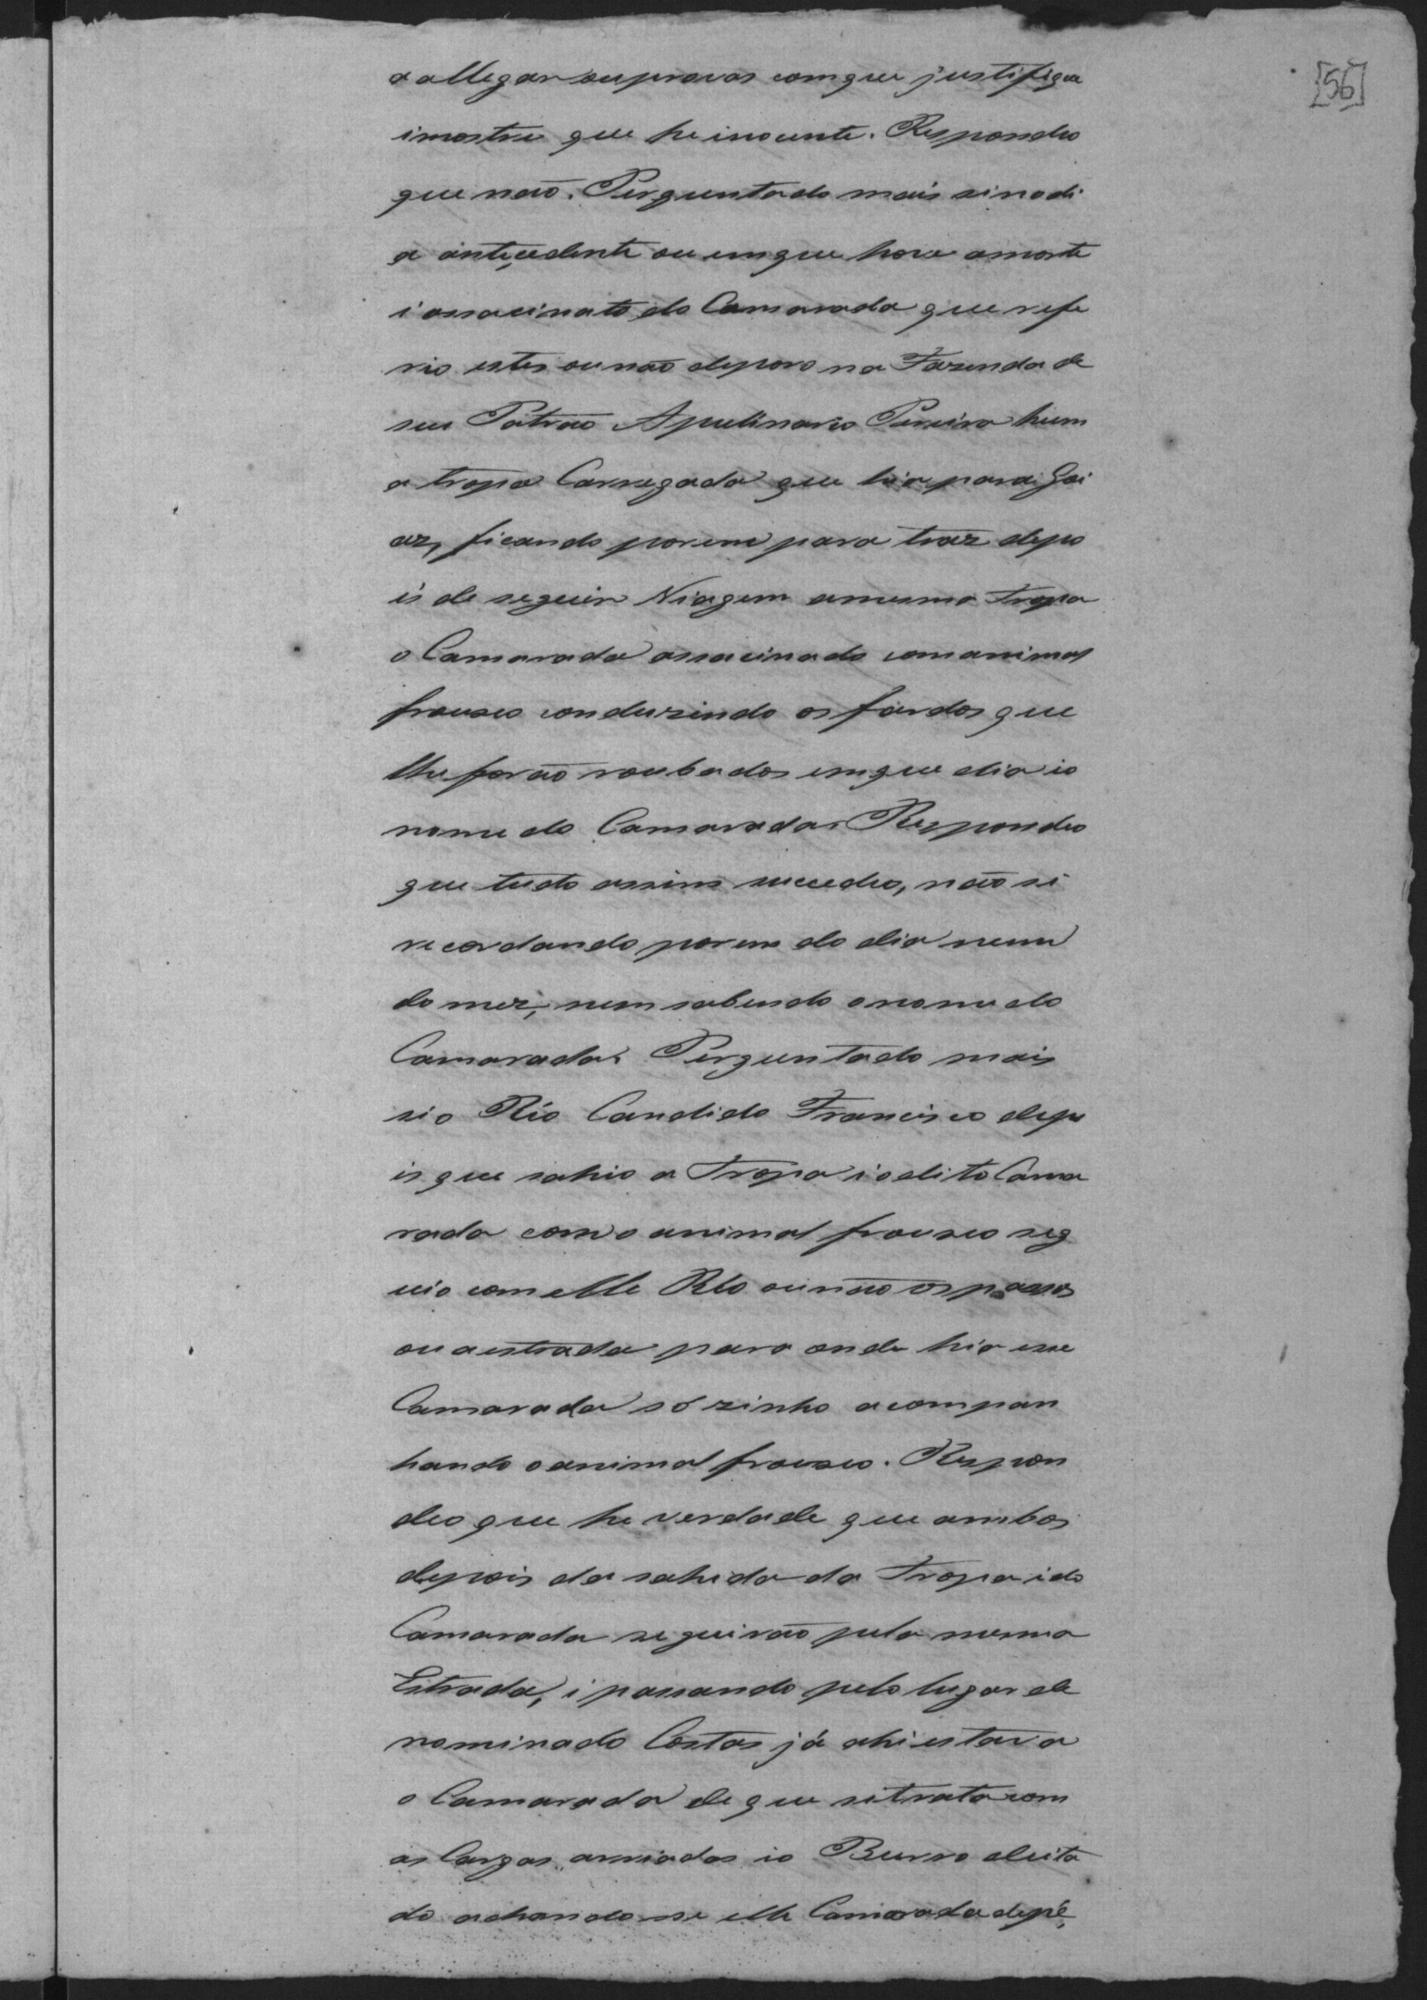 [56]
a allegar ou provas com que justifique
i mostre que he inocente. Respondeo
que não. Perguntado mais si no di
a anteçedente ou em que hove a morte
i assacinato do Camarada que refe
rio esteve ou não de pozo na Fazenda de
seu Patrão Apulinario Pereira hum
a tropa Carregada que hia para Goi
az, ficando porem para traz depo
is de seguir Viagem a mesma tropa
o Camarada assacinado com animal
frouxo conduzindo os fardos que
lhe forão roubados em que dia i o
nome do Camarada. Respondeo
que tudo assim sucedeo, não si
recordando porem do dia nem
do mez, nem sabendo o nome do
Camarada. Perguntado mais
si o Réo Candido Francisco depo
is que sahio a Tropa i o dito Cama
rada com o animal frouxo seg
uio com elle Réo ou não os passos
ou a estrada para onde hia esse
Camarada sózinho acompan
hando o animal frouxo. Respon
deo que he verdade que ambos
depois da sahida da Tropa i do
Camarada seguirão pela mesma
Estrada, i passando pelo lugar de
nominado Costas já ahi estava
o Camarada de que si trata com
as Cargas arriadas i o Burro deita
do achando-se elle Camarada de pé,